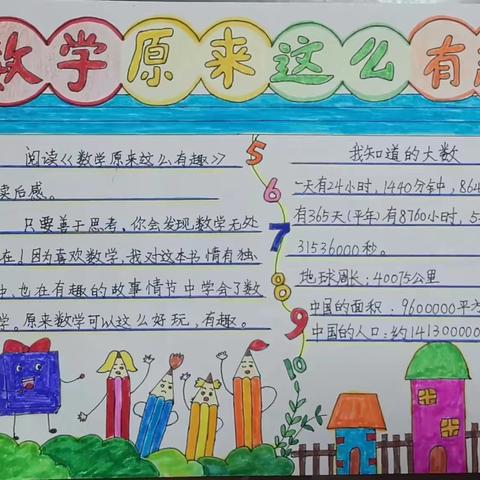 数学原来这么有趣
阅读《数学原来这么有趣》
读后感。
只要善于思考，你会发现数学无处
在！因为喜欢数学，我对这本书情有独
中，也在有趣的故事情节中学会了数
学。原来数学可以这么好玩，有趣。
5
6
7
8
9
10
我知道的大数
一天有24小时，1440分钟，864
有365天(平年)有8760小时，5
31536000秒。
地球周长：40075公里
中国的面积：9600000平方
中国的人口：约141300000